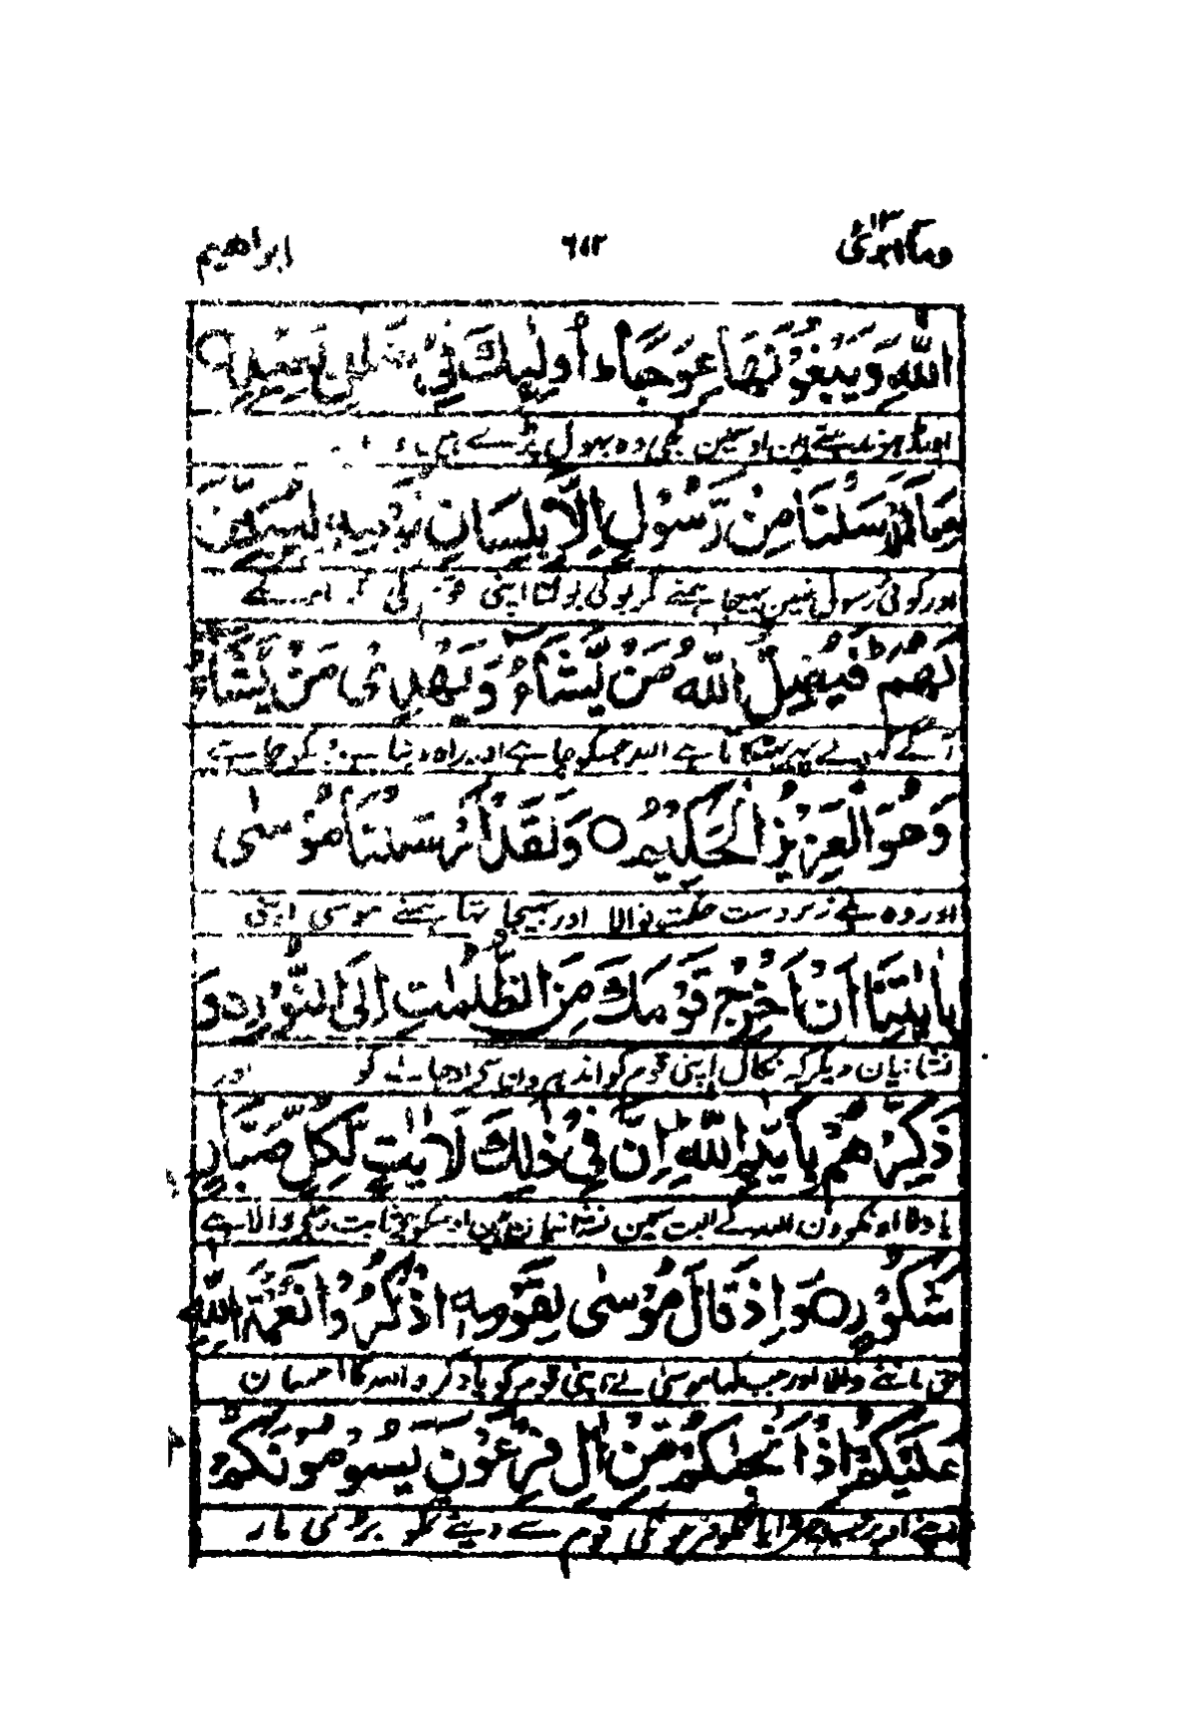 وما ابرئ ١٣ ٦١٢ ابراهيم
اللّٰهِ وَيَبْغُوْنَهَا عِوَجًا ؕ اُولٰٓئِكَ فِيْ ضَلٰلٍۭ بَعِيْدٍ ○
ڈہونڈہتے ہین اوسمین کجی وہ بہول پڑے ہین
وَمَآ اَرْسَلْنَا مِنْ رَّسُوْلٍ اِلَّا بِلِسَانِ قَوْمِهٖ لِيُبَيِّنَ
اور کوئی رسول نہین بہیجا ہمنے مگر بولی بولتا اپنی قوم کی کہ اونکے
لَهُمْ ؕ فَيُضِلُّ اللّٰهُ مَنْ يَّشَآءُ وَيَهْدِيْ مَنْ يَّشَآءُ
آگے کہولے پہر بہٹکاتا ہے اللہ جسکو چاہے اور راہ دیتا ہے جسکو چاہے
وَهُوَ الْعَزِيْزُ الْحَكِيْمُ ○ وَلَقَدْ اَرْسَلْنَا مُوْسٰى
اور وہ ہے زبردست حکمت والا اور بہیجا تہا ہمنے موسی اپنی
بِاٰيٰتِنَآ اَنْ اَخْرِجْ قَوْمَكَ مِنَ الظُّلُمٰتِ اِلَى النُّوْرِ ۙ وَ
نشانیان دیکر کہ نکال اپنی قوم کو اندہیرون سے اوجالے کو اور
ذَكِّرْهُمْ بِاَيّٰىمِ اللّٰهِ ؕ اِنَّ فِيْ ذٰلِكَ لَاٰيٰتٍ لِّكُلِّ صَبَّارٍ
یاد دلا اونکو دن اللہ کے البتہ اسمین نشانیان ہین اوسکو جو ثابت رہنے والا ہے
شَكُوْرٍ ○ وَاِذْ قَالَ مُوْسٰى لِقَوْمِهِ اذْكُرُوْا نِعْمَةَ اللّٰهِ
حق ماننے والا اور جب کہا موسیٰ نے اپنی قوم کو یاد کرو اللہ کا احسان
عَلَيْكُمْ اِذْ اَنْجٰىكُمْ مِّنْ اٰلِ فِرْعَوْنَ يَسُوْمُوْنَكُمْ
اپنے اوپر جب چہڑایا تمکو فرعون کی قوم سے دیتے تمکو بری مار